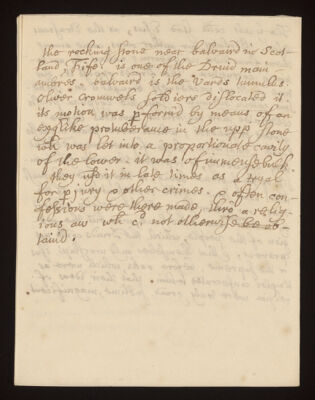 the rocking stone near balvaird in Scot-
land, Fife, is one of the Druid main
ambres. balvaird is the bards tumulus.
Oliver Cromwels soldiers dislocated it
its motion was pform'd by means of an
egglike protuberance in the upp stone
wh was let into a proportionate cavity
of the lower: it was of immense bulk
they us'd it in late times as a tryal
for pjury & other crimes. & often con-
fessions were there made, thro' a relig-
ious aw wh cd not otherwise be ob-
taind.